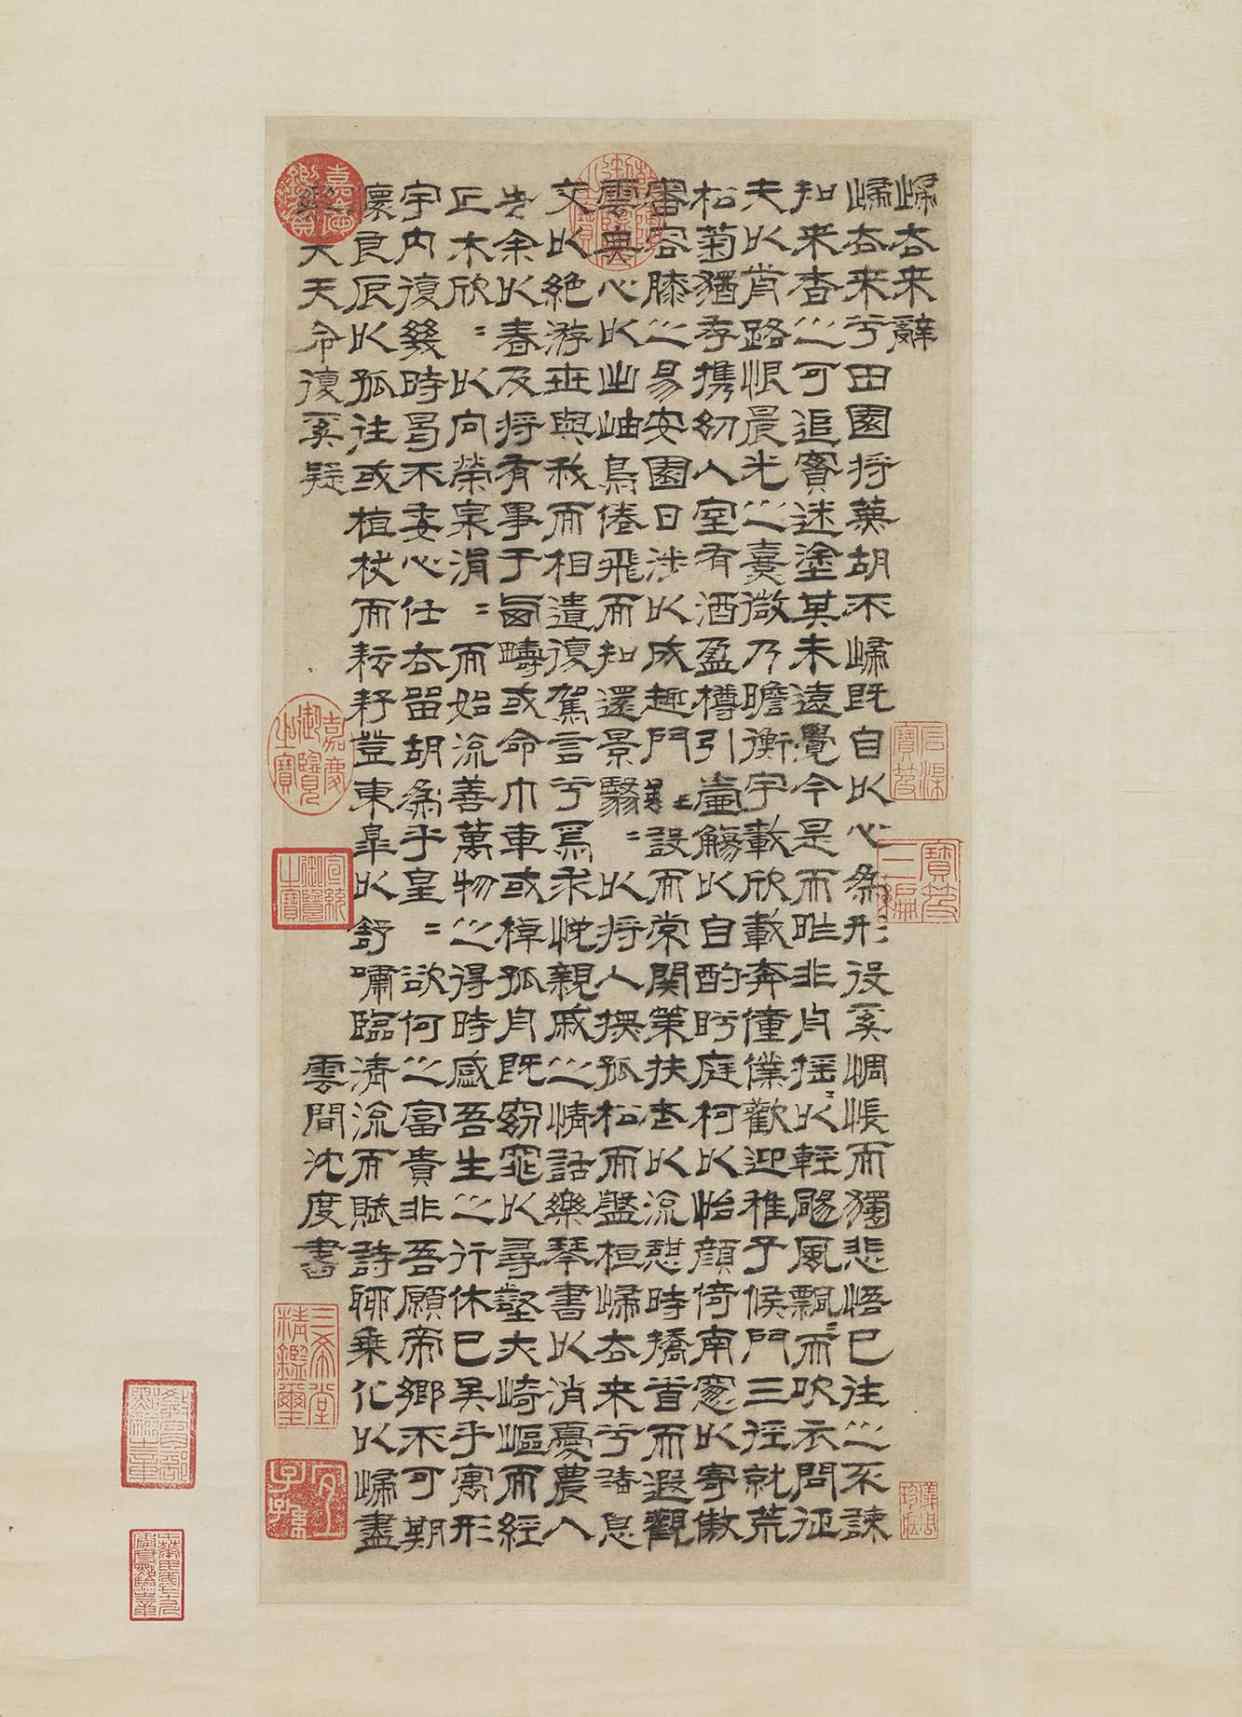 歸去来辭
歸去来兮田園将蕪胡不歸既自以心為形役奚惆悵而獨悲悟已往之不諫
知来者之可追實迷塗其未遠覺今是而昨非舟揺〻以輕颺風飄〻而吹衣問征
夫以前路恨晨光之熹微乃瞻衡宇載欣載奔僮僕歡迎稚子候門三徑就荒
松菊猶存携幼入室有酒盈樽引壺觴以自酌眄庭柯以怡顔倚南窓以寄傲
審容膝之易安園日涉以成趣門雖設而常関策扶老以流憩時矯首而遐觀
雲無心以出岫鳥倦飛而知還景翳〻以将入撫孤松而盤桓歸去来兮請息
交以絶游世與我而相遺復駕言兮焉求悅親戚之情話樂琴書以消憂農人
告余以春及将有事于西疇或命巾車或棹孤舟既窈窕以尋壑夫崎嶇而經
丘木欣〻以向榮泉涓〻而始流善萬物之得時感吾生之行休已矣乎寓形
宇内復幾時曷不委心任去留胡為乎皇〻欲何之富貴非吾願帝鄉不可期
懷良辰以孤往或植杖而耘耔登東皐以舒嘯臨清流而賦詩聊乗化以歸盡
樂夫天命復奚疑
雲間沈度書
嘉慶鑑賞
嘉慶御覽之寶
宣統御覽之寶
三希堂精鑑璽
宜子孫
石渠寶笈
寶笈三編